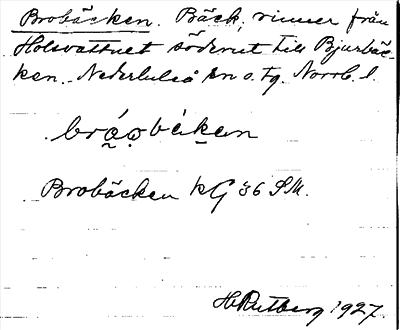 Brobäcken. Bäck, rinner från
Holsvattnet söderut till Bjurbäc-
ken. Nederluleå sn o. tg. Norrb. l.
Brobäcken kG 36 SM.
H Rutberg 1927.